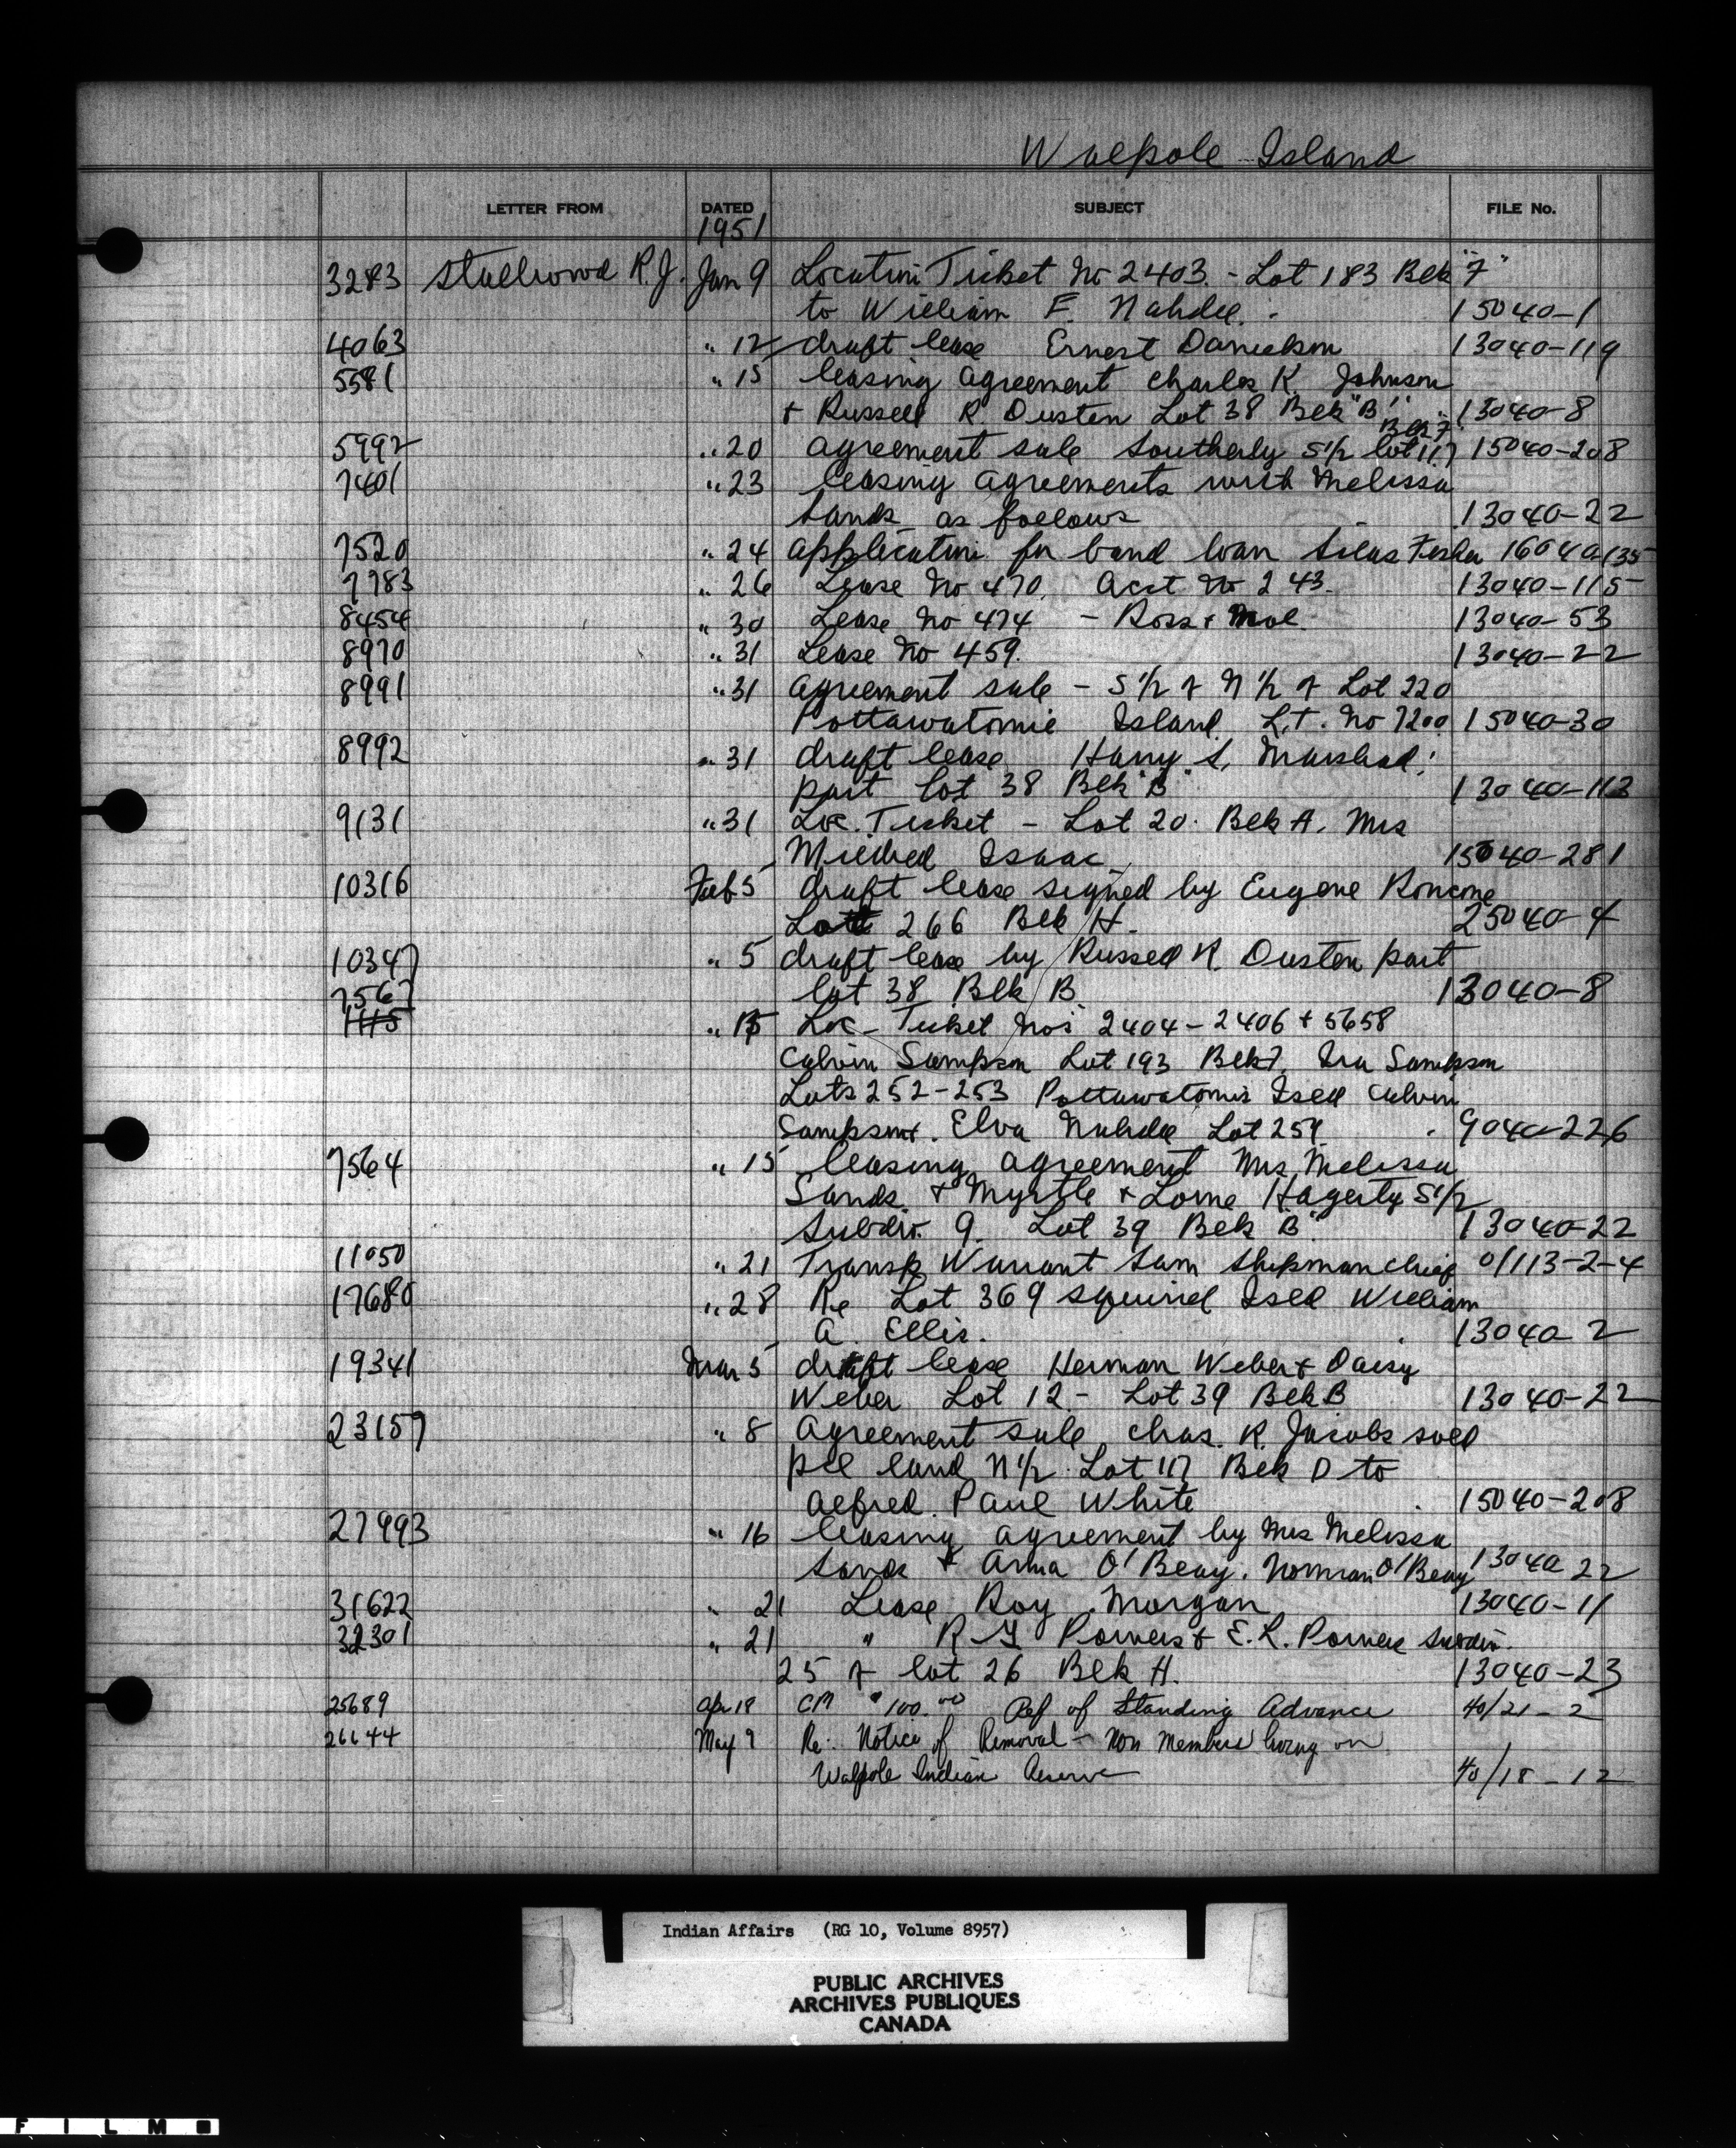 Walpole Island
LETTER FROM DATED SUBJECT FILE No.
1951
3283 Stallwood R.J. Jan 9 Location Ticket No 2403. - Lot 183 Blk "7"
to William F. Nahdee. 15040-1
4063 " 12 draft lease Ernest Danielson 13040-119
5581 " 15 leasing agreement Charles K Johnson
+ Russell R. Dusten Lot 38 Blk "B" 13040-8
Blk 7
5992 " 20 agreement sale Southerly S1/2 lot 117 15040-208
7401 " 23 leasing agreements with Melissa
Sands as follows 13040-22
7520 " 24 application for band loan Silas Fisher 16040-135
7783 " 26 Lease No 470. Acct No 243. 13040-115
8454 " 30 Lease No 474 - Ross + Mae 13040-53
8970 " 31 Lease No 459. 13040-22
8991 " 31 agreement sale - S 1/2 of N 1/2 of Lot 220
Pottawatomie Island. L.T. No 7200 15040-30
8992 " 31 draft lease Harry S. Marshad
part lot 38 Blk "B" 13040-113
9131 " 31 Loc. Ticket - Lot 20. Blk A. Mrs
Mildred Isaac 15040-281
10316 Feb 5 draft lease signed by Eugene Roncone
Lot 266 Blk H. 25040-4
10347 " 5 draft lease by Russell R. Dusten part
lot 38 Blk B 13040-8
7567
1115 " 15 Loc - Ticket Nos 2404 - 2406 + 5658
Calvin Sampson Lot 193 Blk 7. Ira Sampson
Lots 252-253 Pottawatomie Isld Calvin
Sampson + Elva Nahdee Lot 259. 9040-226
7564 " 15 leasing agreement Mrs Melissa
Sands + Myrtle + Lorne Hagerty S1/2
Subdiv. 9. Lot 39 Blk "B" 13040-22
11050 " 21 Transp Warrant Sam Shipman Chief 0/113-2-4
17680 " 28 Re Lot 369 Squirrel Isld William
A. Ellis. 13040-2
19341 Mar 5 draft lease Herman Weber + Daisy
Weber Lot 12 - Lot 39 Blk B 13040-22
23157 " 8 Agreement sale Chas. K. Jacobs sold
pcl land N1/2 Lot 117 Blk D to
Alfred Paul White 15040-208
27993 " 16 leasing agreement by Mrs Melissa
Sands + Arma O'Beay. Norman O'Beay 13040 22
31622 " 21 Lease Roy Morgan 13040-11
32301 " 21 " R G Powers + E. L. Powers Subdiv.
25 of lot 26 Blk H. 13040-23
25689 Apr 18 CM $100.00 Ref of Standing Advance 40/21-2
26644 May 9 Re: Notice of Removal - Non Members living on
Walpole Indian Reserve 40/18-12
Indian Affairs (RG 10, Volume 8957)
PUBLIC ARCHIVES
ARCHIVES PUBLIQUES
CANADA
FILM